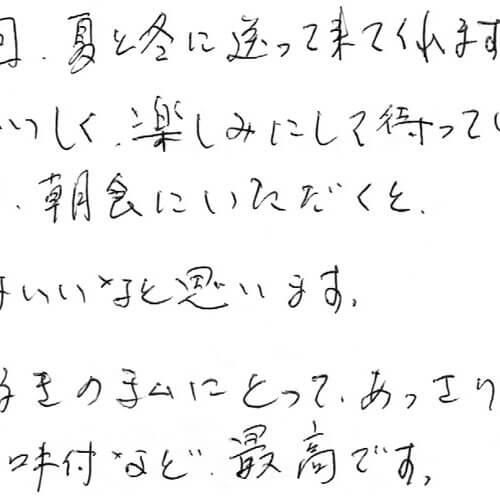 回、夏と冬に送って来てくれます
いつしく、楽しみにして待ってい
、朝食にいただくと、
はいいなと思います。
好きの私にとって、あっさり
味付など、最高です。